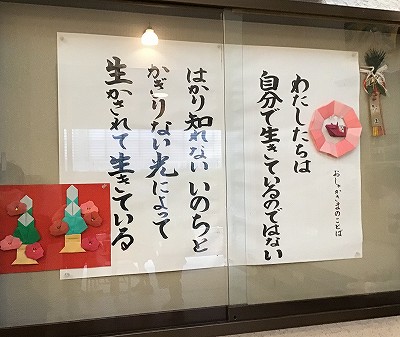 おしゃかさまのことば
わたしたちは
自分で生きているのではない
はかり知れない いのちと
かぎりない光によって
生かされて生きている